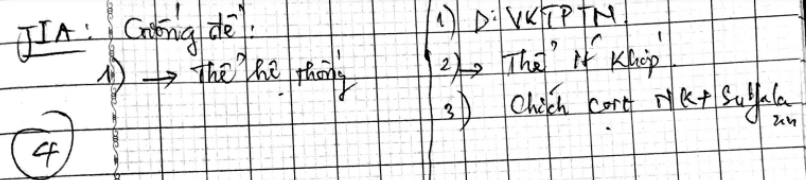 JIA: Cương để:
1) → Thể hệ thống
4
1) D: VKTPTN
2) → Thể Ít Khớp
3) Chích cort NK + Sulfala